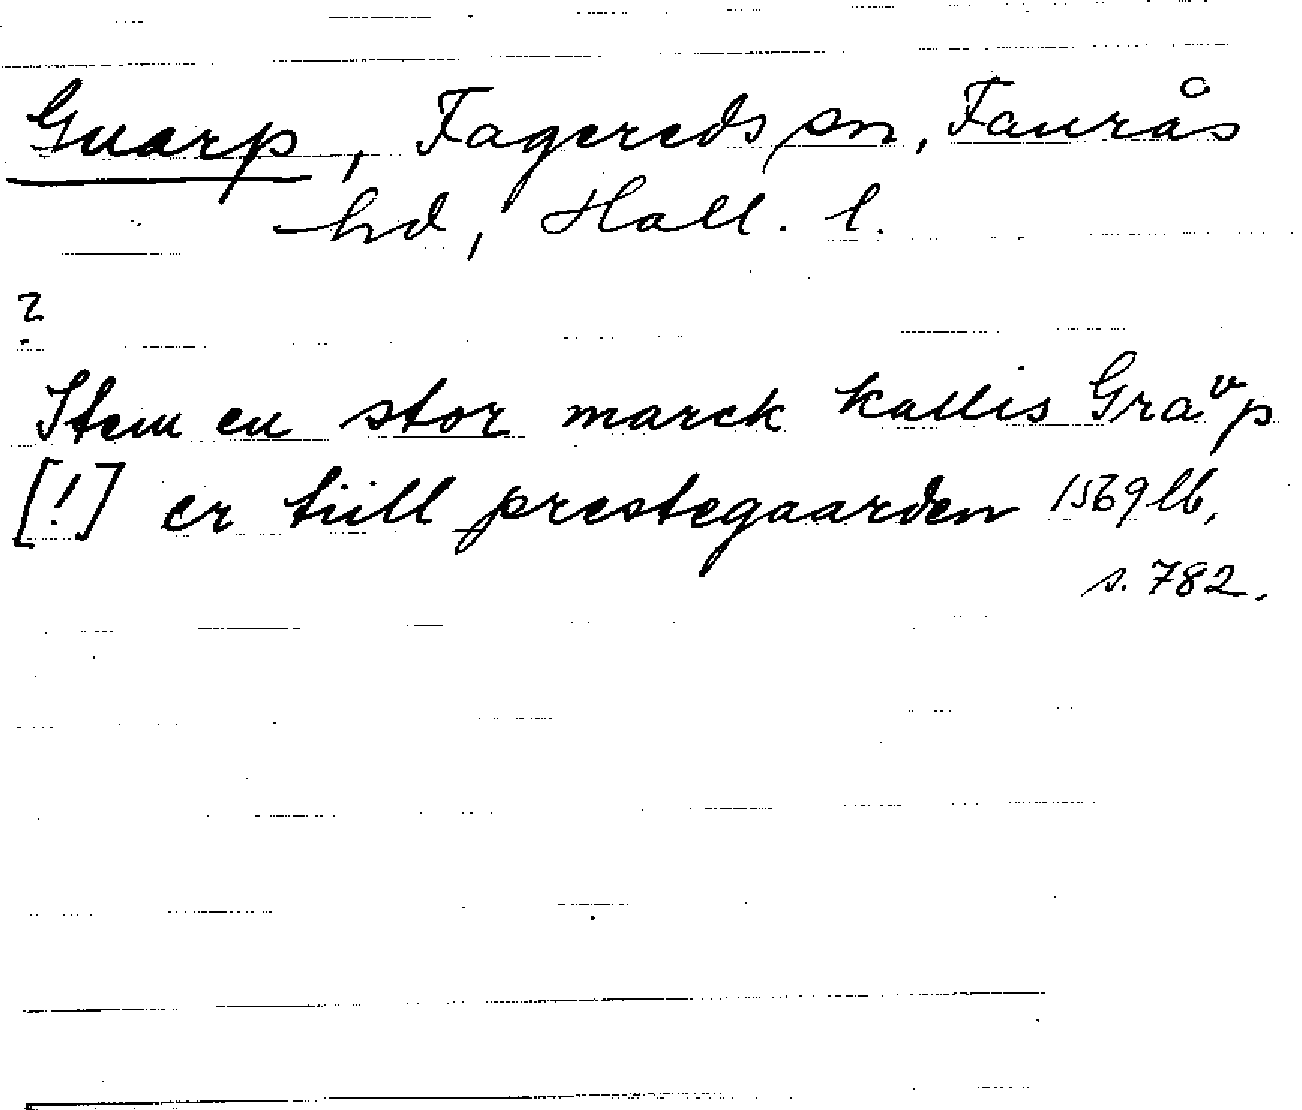 Guarp, Fagereds sn, Faurås
hd, Hall. l.
?
Item en stor marck kallis Graͮp
[!] er tiill prestegaarden 1569 lb,
s. 782.